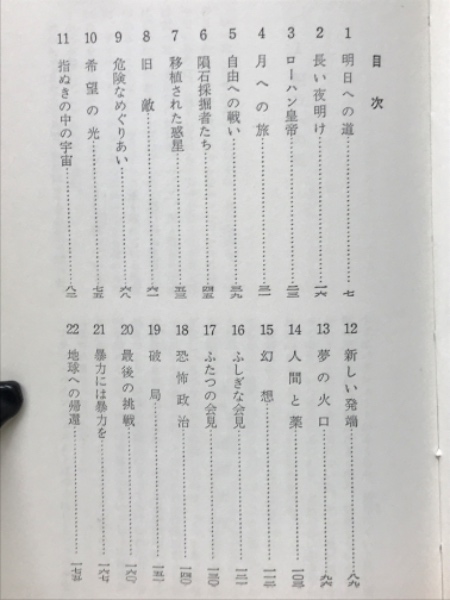 目次
1 明日への道 七
2 長い夜明け 一六
3 ローハン皇帝 二三
4 月への旅 三一
5 自由への戦い 三九
6 隕石採掘者たち 四五
7 移植された惑星 五三
8 旧敵 六一
9 危険なめぐりあい 六八
10 希望の光 七五
11 指ぬきの中の宇宙 八二
12 新しい発端 八九
13 夢の火口 九六
14 人間と薬 一〇三
15 幻想
16 ふしぎな会見
17 ふたつの会見 一三〇
18 恐怖政治 一四〇
19 破局 一五一
20 最後の挑戦 一六〇
21 暴力には暴力を 一六七
22 地球への帰還 一七五